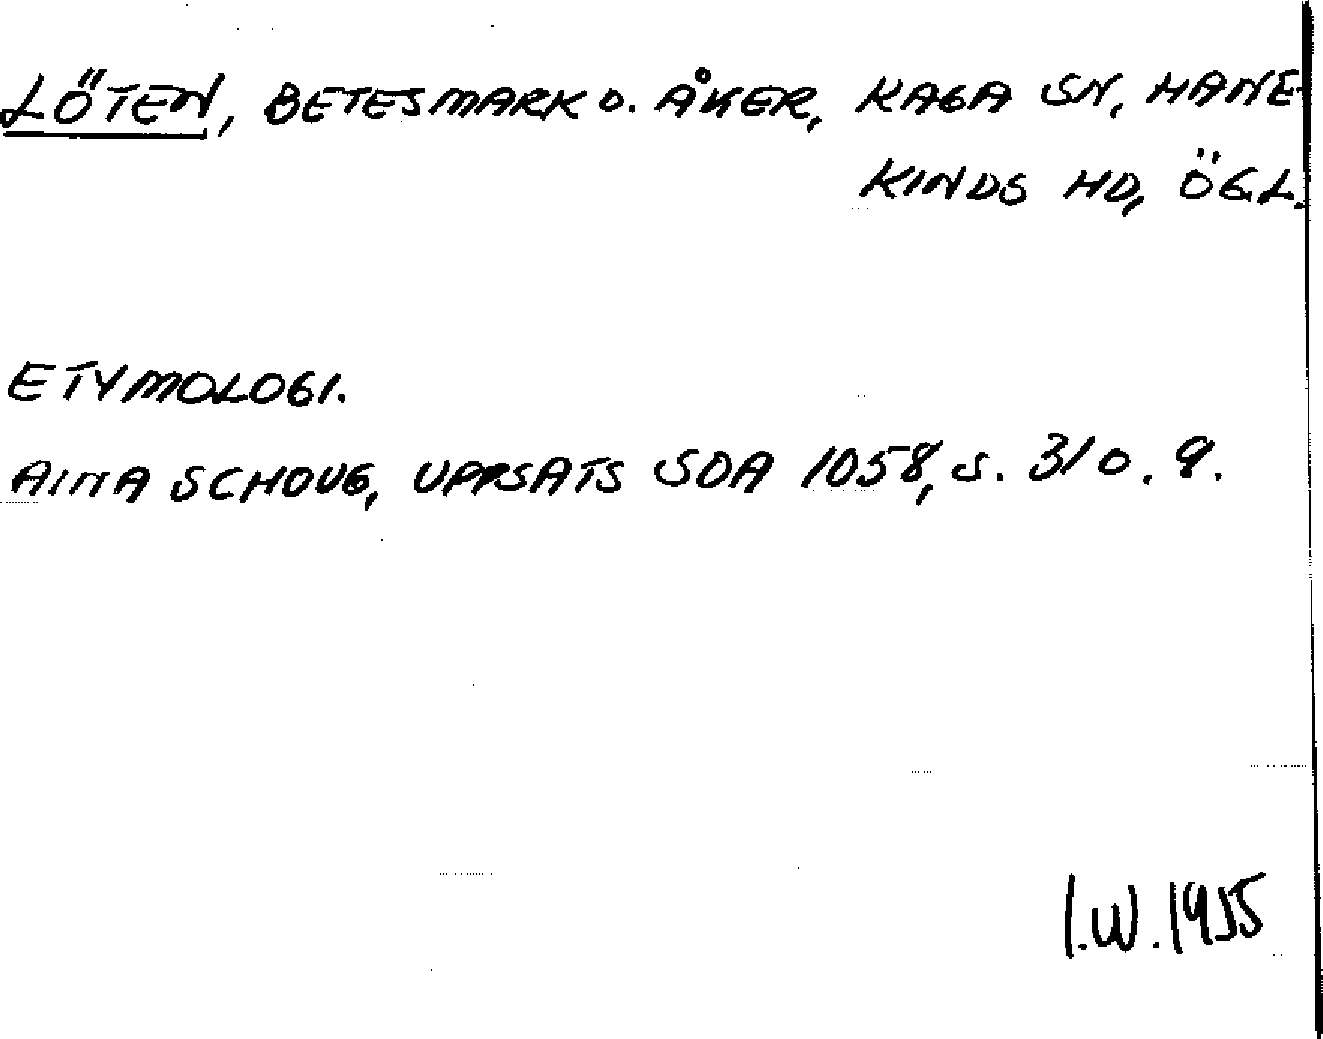 LÖTEN, BETESMARK O. ÅKER, KAGA SN, HANE-
KINDS HD, ÖGL.
ETYMOLOGI.
AINA SCHOUG, UPPSATS SOA 1058, S. 31 O. 9.
I.W. 1955